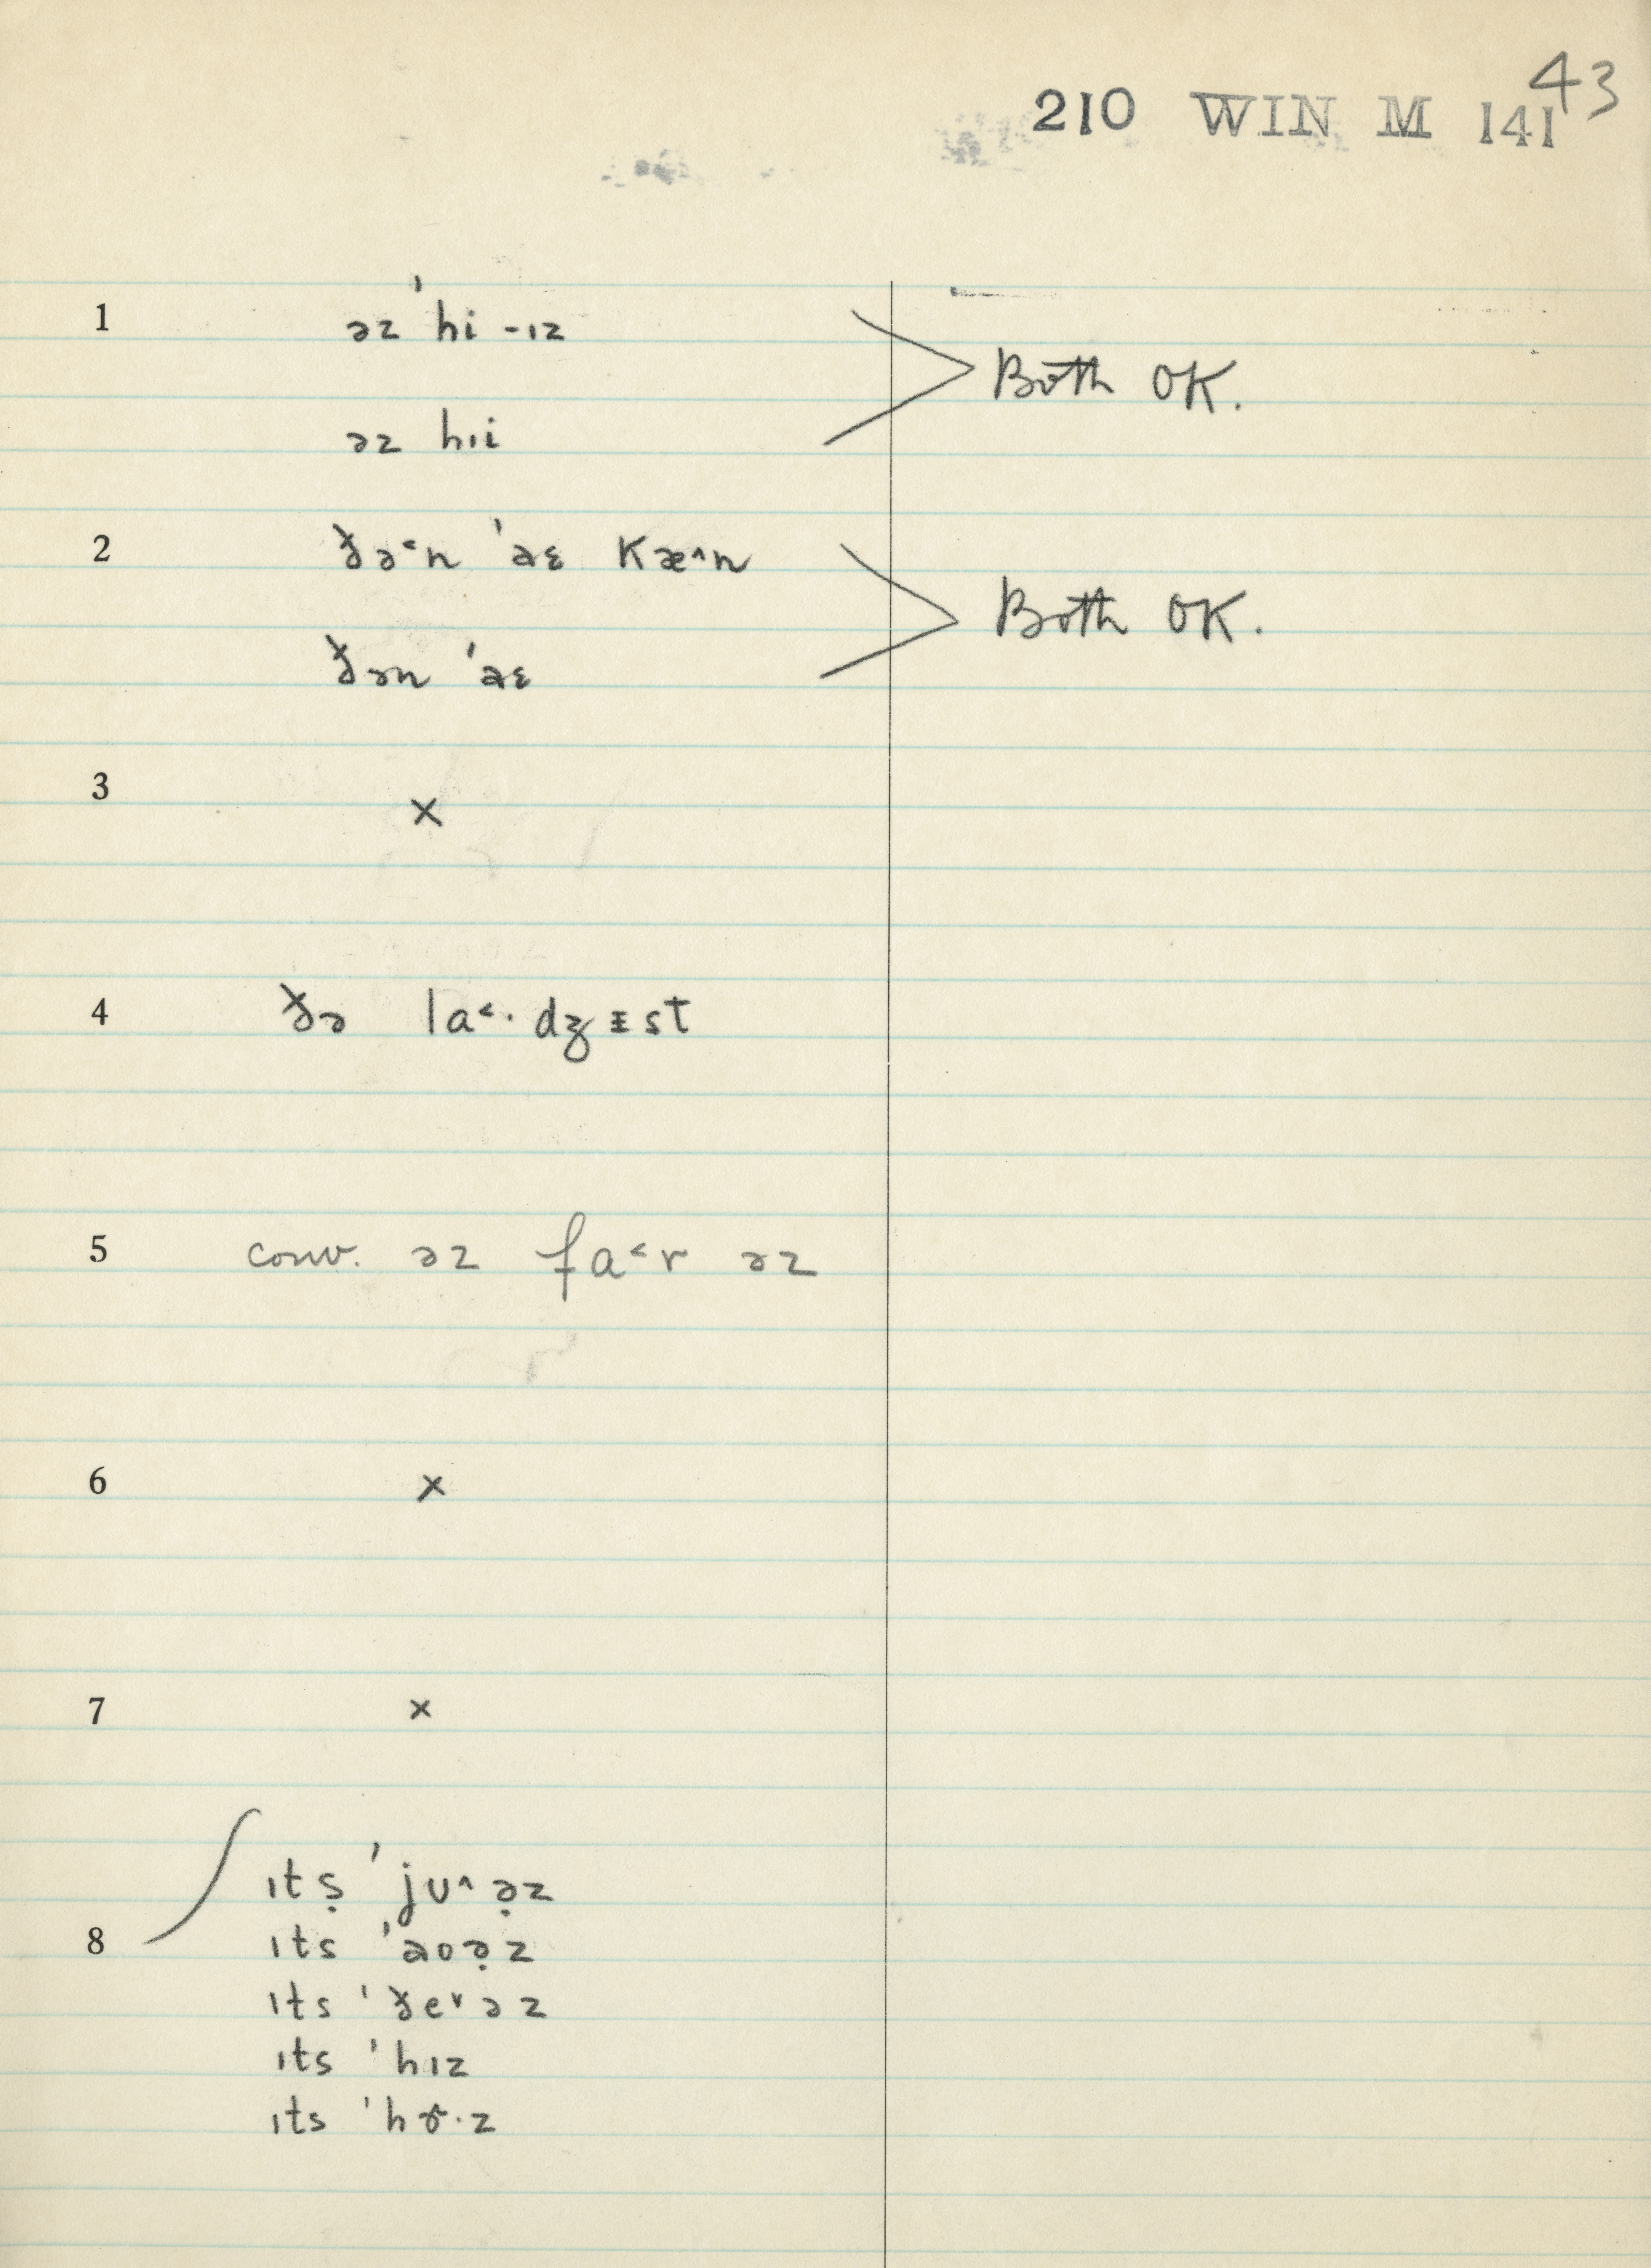 43
210 WIN M 141
1 əz ˈhi -ɪz
əz hɪi
Both OK.
2 ðə˂n ˈaɛ Kæ˄n
ðən ˈaɛ
Both OK.
3 ×
4 ðə la˂· dʒɪst
5 conv. əz fa˂r əz
6 ×
7 ×
ɪtṣ ˈjʊ˄ə̣z
8 ɪts ˈaʊə̣z
ɪts ˈðe˅əz
ɪts ˈhɪz
ɪts ˈhɚ·z